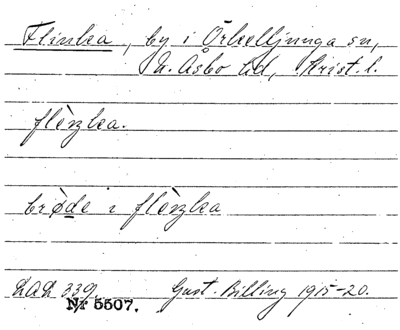 Flinka, by i Örkelljunga sn,
N. Åsbo hd, Krist. l.
flènka.
brø̀de i flènka
DAL 339. Gust. Billing 1915-20.
Nr 5507.